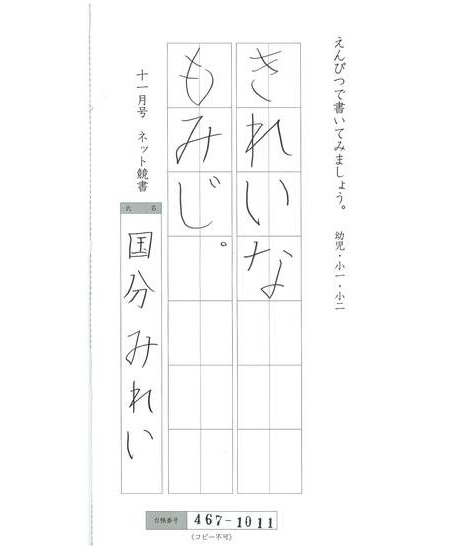 えんぴつで書いてみましょう。 幼児・小一・小二
きれいな
もみじ。
十一月号 ネット競書
氏名
国分みれい
台帳番号 467-1011
(コピー不可)